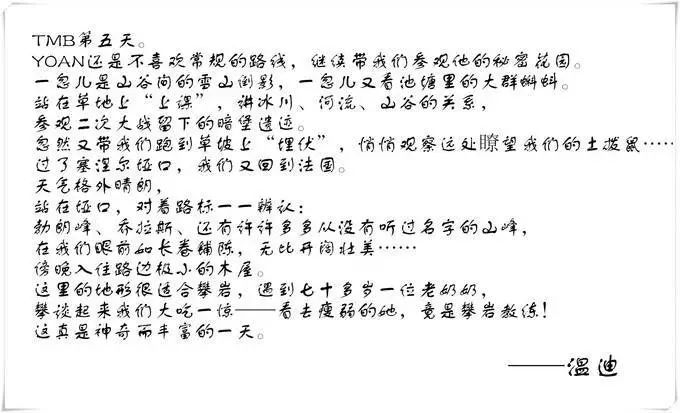 TMB第五天。
YOAN还是不喜欢常规的路线，继续带我们参观他的秘密花园。
一忽儿是山谷间的雪山倒影，一忽儿又看池塘里的大群蝌蚪。
站在草地上“上课”，讲冰川、河流、山谷的关系，
参观二次大战留下的暗堡遗迹。
忽然又带我们跑到草坡上“埋伏”，悄悄观察远处瞭望我们的土拨鼠……
过了塞涅尔垭口，我们又回到法国。
天气格外晴朗，
站在垭口，对着路标一一辨认：
勃朗峰、乔拉斯、还有许许多多从没有听过名字的山峰，
在我们眼前如长卷铺陈，无比开阔壮美……
傍晚入住路边极小的木屋。
这里的地形很适合攀岩，遇到七十多岁一位老奶奶，
攀谈起来我们大吃一惊——看去瘦弱的她，竟是攀岩教练！
这真是神奇而丰富的一天。
——温迪